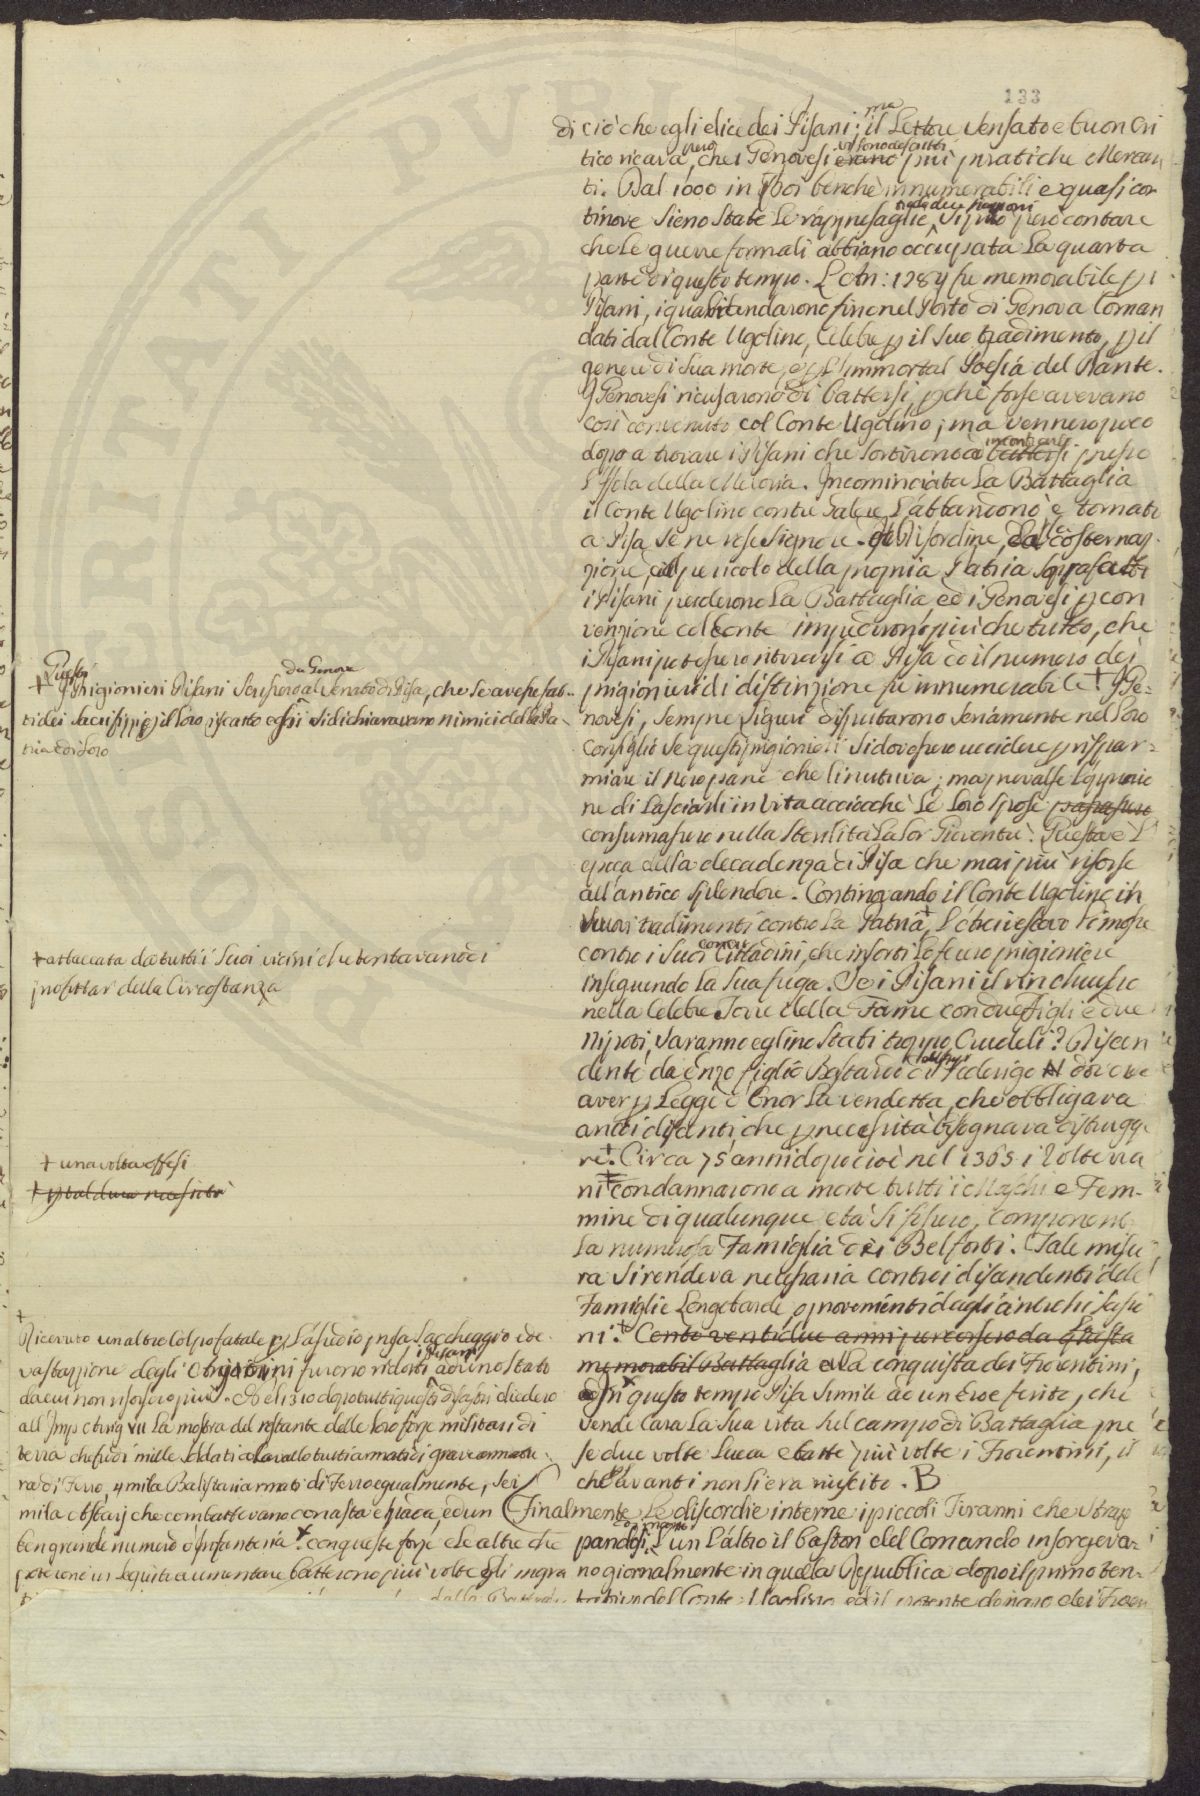 133
di ciò che egli dice dei Pisani; ma il Lettore sensato e buon Cri
tico ricava però, che i Genovesi vi sono descritti erano più pirati che Mercan
ti. Dal 1000 in poi benchè innumerabili e quasi con
tinove sieno state le rappresaglie, si può però contare
che le guerre formali abbiano occupata la quarta
parte di questo tempo. L'An: 1284 fu memorabile p i
Pisani, i quali andarono fino nel Porto di Genova Coman
dati dal Conte Ugolino, celebre p il suo tradimento, p il
genere di sua morte, e p l'immortal Poesia del Dante.
I Genovesi ricusarono di battersi, pchè forse avevano
così convenuto col Conte Ugolino; ma vennero poco
dopo a trovare i Pisani che sortirono a incontrarli battersi presso
l'Isola della Meloria. Incominciata la Battaglia
il Conte Ugolino con tre Galere l'abbandonò e tornato
a Pisa se ne rese Signore. Dal Disordine, dalla costerna
zione, dal pericolo della propria Patria sopraffatti
i Pisani perderono la Battaglia ed i Genovesi p con
venzione col Conte impedirono più che tutto, che
i Pisani potessero ritirarsi a Pisa ed il numero dei
prigionieri di distinzione fu innumerabile + I Ge=
novesi, sempre Liguri disputarono seriamente nel loro
Consiglio se questi prigionieri si dovessero uccidere p rispar=
miare il nero pane che li nutriva; ma prevalse l'opinio
ne di lasciarli in vita acciocchè le loro spose
consumassero nella sterilità la lor Gioventù. Questa è l'
epoca della decadenza di Pisa che mai più risorse
all'antico splendore. Continovando il Conte Ugolino in
nuovi tradimenti contro la Patria +, l'Arcivescovo l
contro i suoi concittadini, che insorti lo fecero prigioniere
inseguendo la sua fuga. Se i Pisani il rinchiusero
nella celebre Torre della Fame con due figli e due
Nipoti, saranno eglino stati troppo crudeli? Discen
dente da Enzo figlio Bastardo di Federigo dovea
aver p Legge d'Onor la vendetta, che obbligava
anco i discendenti che p necessità bisognava distrugge
re +. Circa 75 anni dopo cioè nel 1363 i Volterra
ni condannarono a morte tutti i Maschi e Fem-
mine di qualunque età si fossero, componenti
la numerosa Famiglia dei Belforti. Tale misu
ra si rendeva necessaria contro i discendenti delle
Famiglie Longobarde, o provenienti dagli antichi
ni + Cento ventidue anni percorsero da questa
memorabil Battaglia alla conquista dei Fiorentini,
ed in questo tempo Pisa simile ad un Eroe ferito, che
vende cara la sua vita sul campo di Battaglia pre
se due volte Lucca e batte più volte i Fiorentini, il
che avanti non gli era riuscito. B
(Finalmente le discordie interne i piccoli Tiranni che strap
pandosi l'un l'altro il baston del Comando insorgeva=
no giornalmente in quella Repubblica dopo il primo ten=
tativo del Conte Ugolino, ed il potente denaro dei Fioren
+ Questi Prigionieri Pisani scrissero da Genova al Senato di Pisa, che se avesse fat=
ti dei sacrifizzi p il loro riscatto essi si dichiaravano nimici della Pa=
tria e di loro
+ attaccata da tutti i suoi vicini che tentavano di
profittar della circostanza
+ una volta offesi
+
Ricevuto un altro colpo fatale p l'assedio presa saccheggio e de
vastazione degli Angioini furono ridotti i Pisani ad uno stato
da cui non risorsero più. Nel 1310 dopo tutti questi disastri diedero
all'Imp Arrig VII la mostra del restante delle loro forze militari di
terra che fu di mille soldati a Cavallo tutti armati di grave armatu
ra di Ferro, 4 mila Balistari armati di Ferro egualmente, sei
mila Astarj che combattevano con asta e spada, ed un
ben grande numero d'Infanteria + con queste forze e le altre che
poterono in seguito aumentare batterono più volte gli ingra
dalla